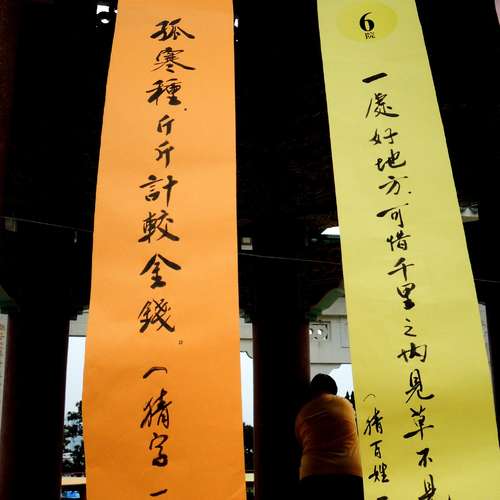 6
院
一處好地方,可惜千里之內見草不見
(猜百姓
孤寒種,斤斤計較金錢。(猜字一